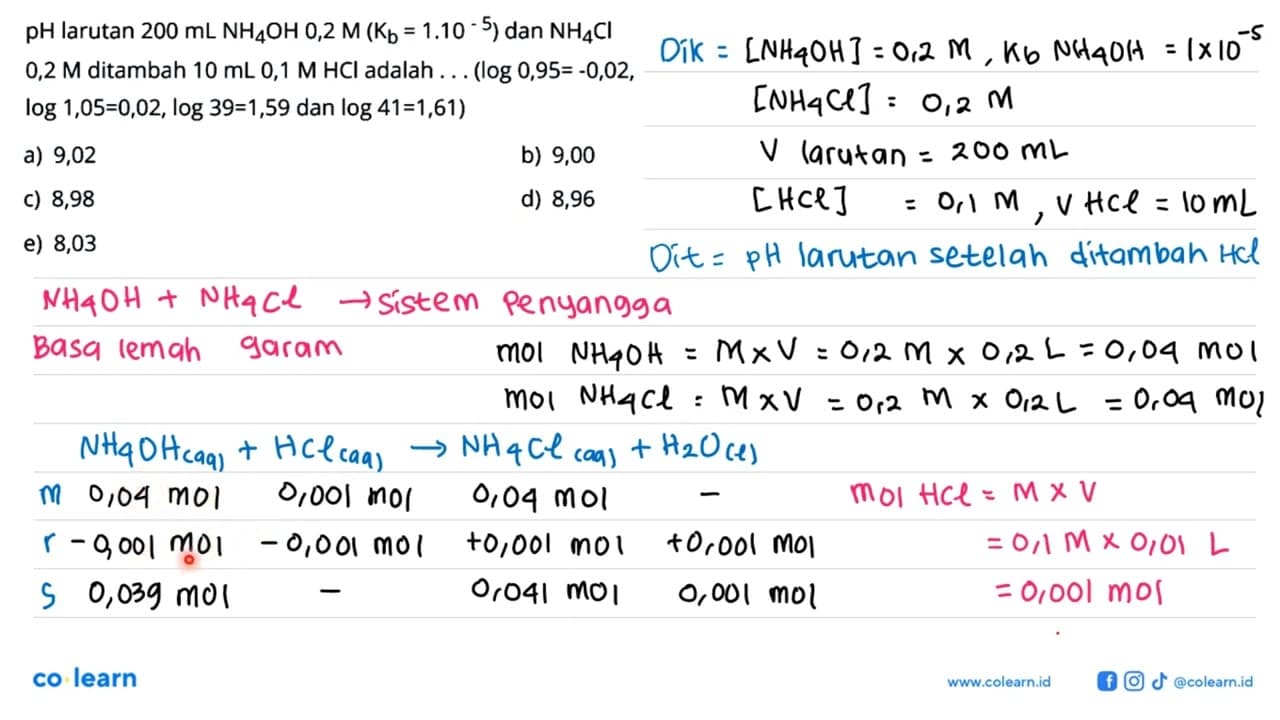 pH larutan 200 mL NH4OH 0,2 M (Kb = 1.10 - 5) dan NH4Cl
0,2 M ditambah 10 mL 0,1 M HCl adalah . . . (log 0,95= -0,02,
log 1,05=0,02, log 39=1,59 dan log 41=1,61)
a) 9,02 b) 9,00
c) 8,98 d) 8,96
e) 8,03
Dik = [NH4OH] = 0,2 M , Kb NH4OH = 1x10^-5
[NH4Cl] = 0,2 M
V larutan = 200 mL
[HCl] = 0,1 M , V HCl = 10 mL
Dit = pH larutan setelah ditambah HCl
NH4OH + NH4Cl → Sistem Penyangga
Basa lemah garam
mol NH4OH = M x V = 0,2 M x 0,2 L = 0,04 mol
mol NH4Cl = M x V = 0,2 M x 0,2 L = 0,04 mol
NH4OH(aq) + HCl(aq) → NH4Cl(aq) + H2O(l)
m 0,04 mol 0,001 mol 0,04 mol – mol HCl = M x V
r - 0,001 mol - 0,001 mol +0,001 mol +0,001 mol = 0,1 M x 0,01 L
s 0,039 mol – 0,041 mol 0,001 mol = 0,001 mol
co learn www.colearn.id @colearn.id